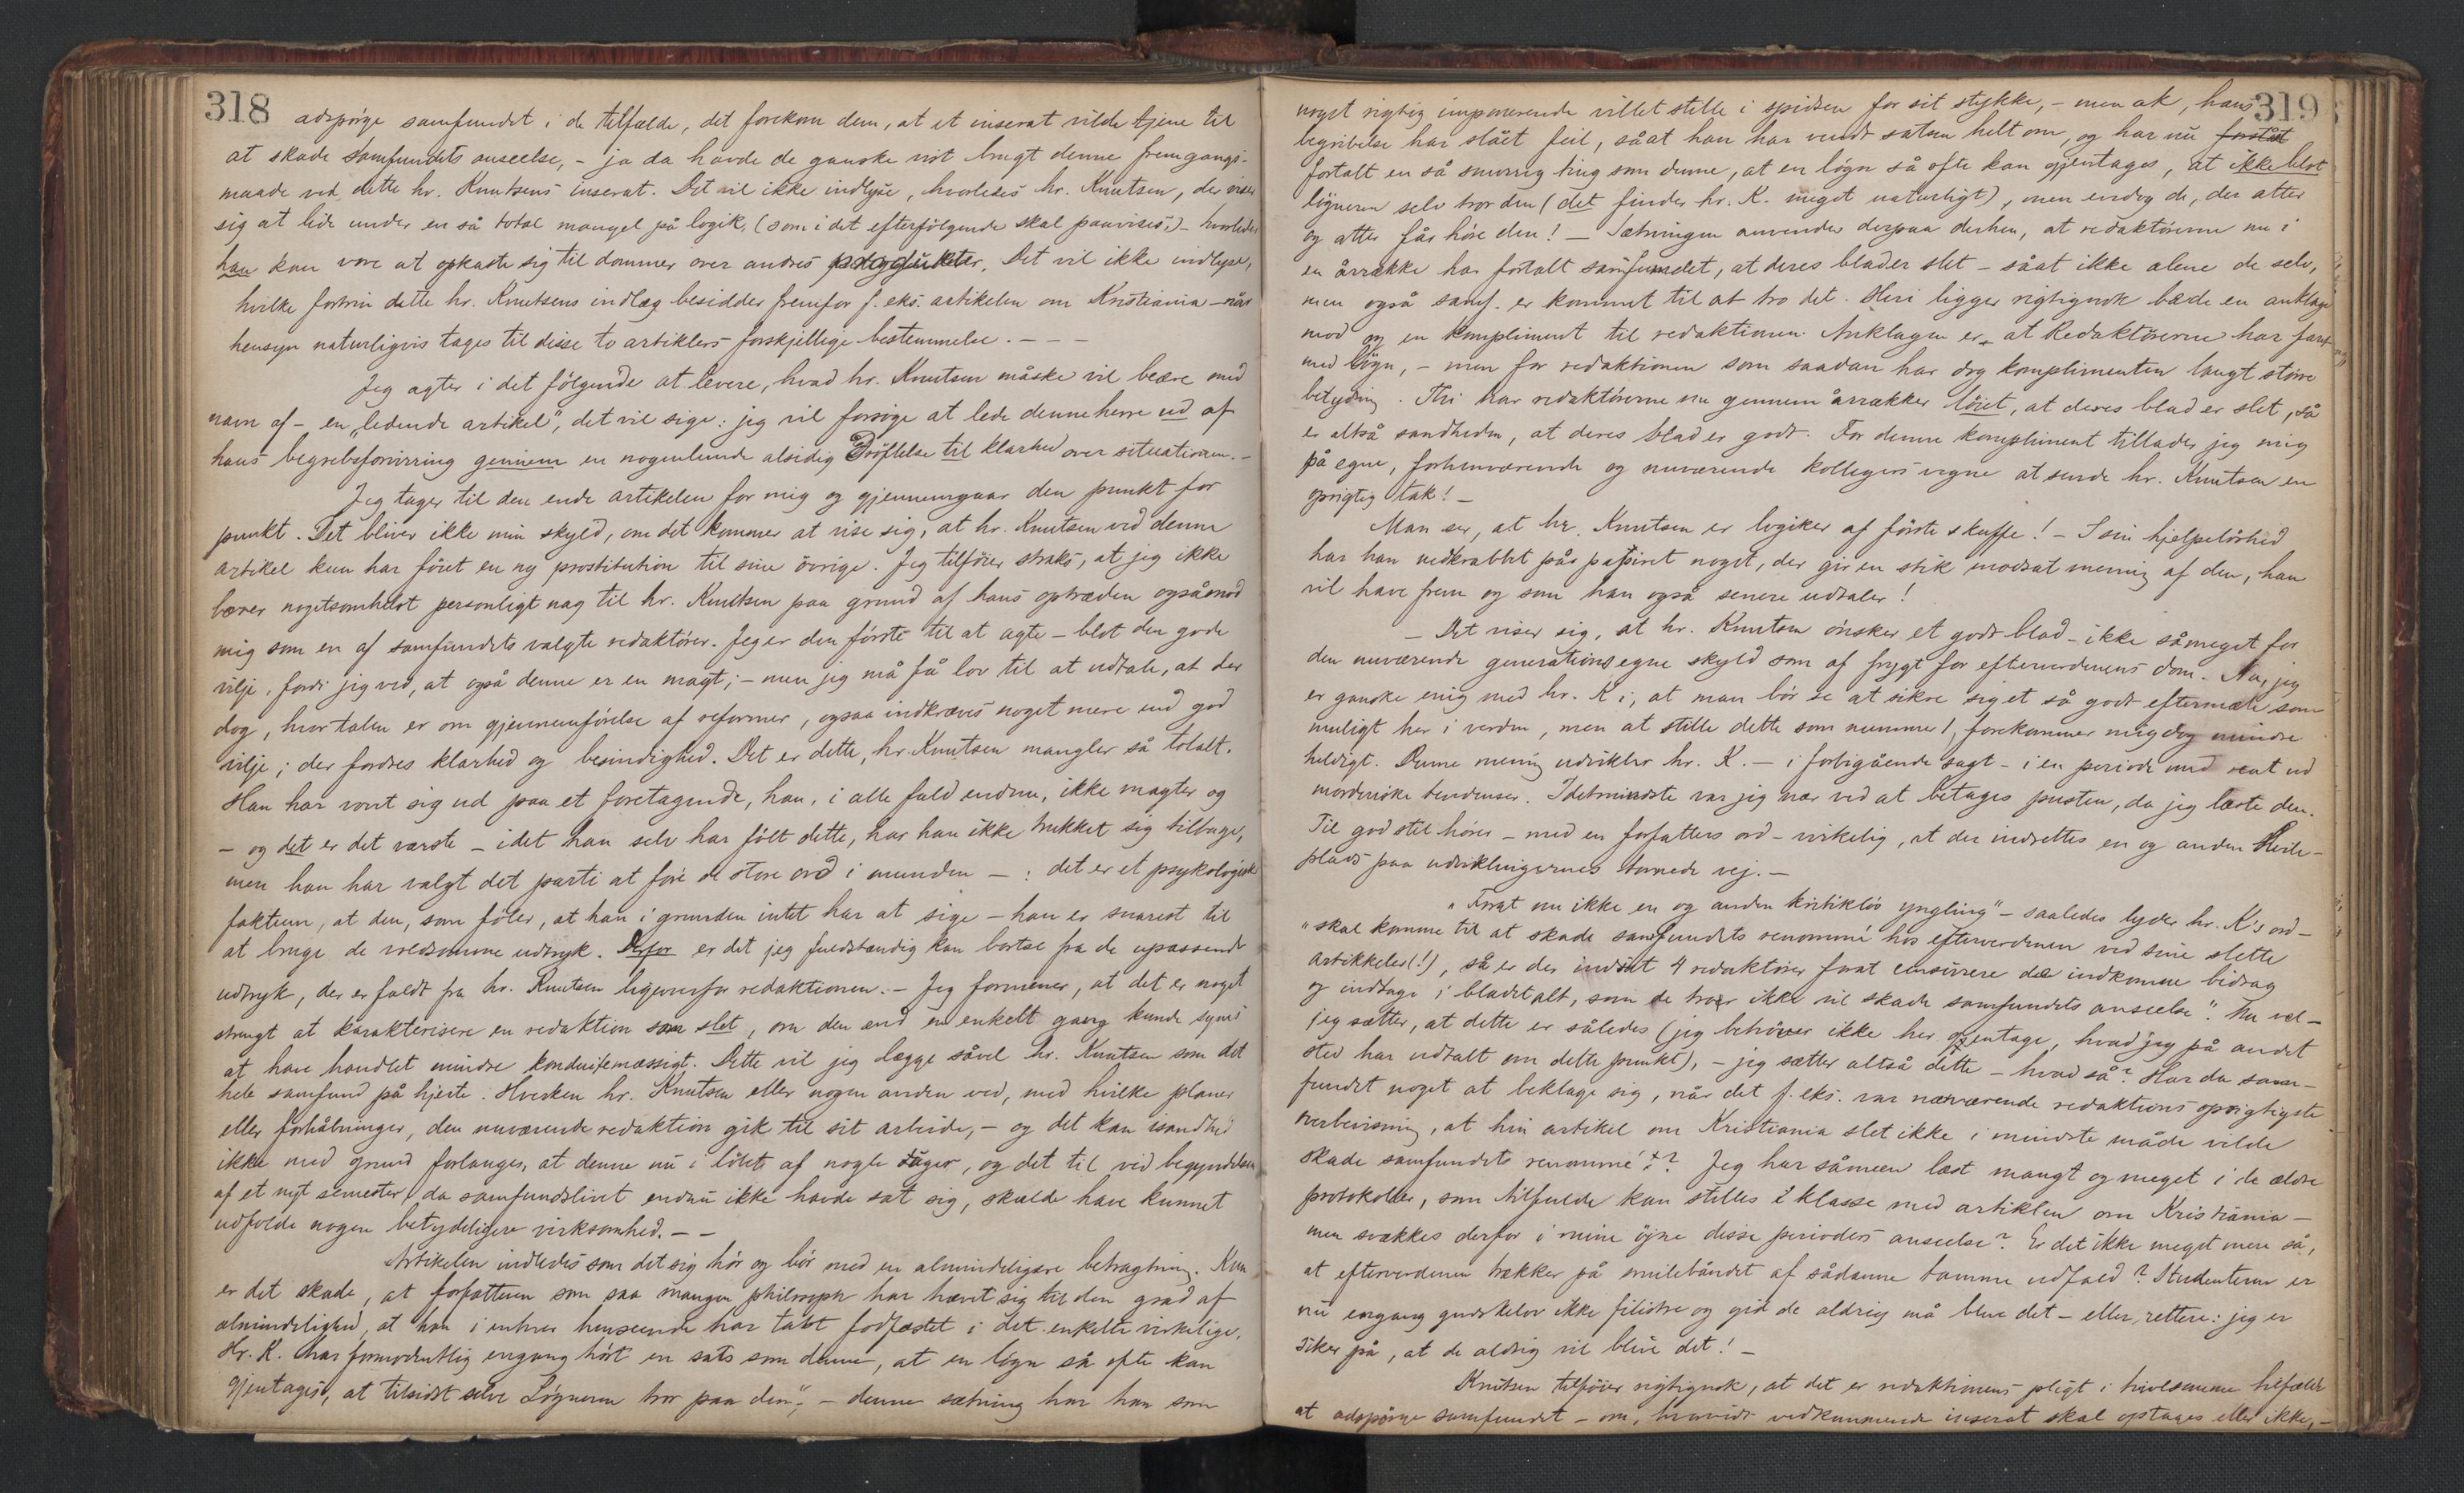 318
adspörge samfundet i de tilfælde, det forekom dem, at et inserat vilde tjene til
at skade samfundets anseelse, – ja da havde de ganske vist brugt denne fremgangs-
maade ved dette hr. Knutsens inserat. Det vil ikke indlyse, hvorledes hr. Knutsen, der viser
sig at lide under en så total mangel på logik, (som i det efterfölgende skal paavises,) – hvorledes
han kan være at opkaste sig til dommer over andres produkter. Det vil ikke indlyse,
hvilke fortrin dette hr. Knutsens indlæg besidder fremfor f. eks. artikelen om Kristiania – når
hensyn naturligvis tages til disse to artiklers forskjellige bestemmelse. – – –
Jeg agter i det fölgende at levere, hvad hr. Knutsen måske vil beære med
navn af – en „ledende artikel", det vil sige: jeg vil forsöge at lede denne herre ud af
hans begrebsforvirring gennem en nogenlunde alsidig Dröftelse til klarhed over situationen. –
Jeg tager til den ende artikelen for mig og gjennemgaar den punkt for
punkt. Det bliver ikke min skyld, om det kommer at vise sig, at hr. Knutsen ved denne
artikel kun har föiet en ny prostitution til sine övrige. Jeg tilföier straks, at jeg ikke
bærer nogetsomhelst personligt nag til hr. Knutsen paa grund af hans optræden også mod
mig som en af samfundets valgte redaktörer. Jeg er den förste til at agte – blot den gode
vilje, fordi jeg ved, at også denne er en magt; – men jeg må få lov til at udtale, at der
dog, hvor talen er om gjennemförelse af reformer, ogsaa indkræves noget mere end god
vilje; der fordres klarhed og besindighed. Det er dette, hr. Knutsen mangler så totalt.
Han har vovet sig ud paa et foretagende, han, i alle fald endnu, ikke magter og
– og det er det værste – idet han selv har fölt dette, har han ikke trukket sig tilbage,
men han har valgt det parti at före de store ord i munden – : det er et psykologisk
faktum, at den, som föler, at han i grunden intet har at sige – han er snarest til
at bruge de voldsomme udtryk. Derfor er det jeg fuldstændig kan bortse fra de upassende
udtryk, der er faldt fra hr. Knutsen ligeoverfor redaktionen. – Jeg formener, at det er noget
strengt at karakterisere en redaktion som slet, om den end en enkelt gang kunde synes
at have handlet mindre konduitemæssigt. Dette vil jeg lægge såvel hr. Knutsen som det
hele samfund på hjerte. Hverken hr. Knutsen eller nogen anden ved, med hvilke planer
eller forhåbninger, den nuværende redaktion gik til sit arbeide, – og det kan isandhed
ikke med grund forlanges, at denne nu i löbet af nogle dager, og det til ved begyndelsen
af et nyt semester, da samfundslivet endnu ikke havde sat sig, skulde have kunnet
udfolde nogen betydeligere virksomhed. – –
Artikelen indledes som det sig hör og bör med en almindeligere betragtning. Kun
er det skade, at forfatteren som saa mangen philosoph har hævet sig til den grad af
almindelighed, at han i enhver henseende har tabt fodfæstet i det enkelte virkelige.
Hr. K. har formodentlig engang hört en sats som denne, at en lögn så ofte kan
gjentages, at tilsidst selve Lögneren tror paa den", – denne sætning har han som
319
noget rigtig imponerende villet stille i spidsen for sit stykke, – men ak, hans
begribelse har slået feil, såat han har vendt satsen helt om, og har nu forstået
fortalt en så snurrig ting som denne, at en lögn så ofte kan gjentages, at ikke blot
lögneren selv tror den (det finder hr. K. meget naturligt), men endog de, der atter
og atter får höre den! – Sætningen anvendes derpaa derhen, at redaktörerne nu i
en årrække har fortalt samfundet, at deres blader slet – såat ikke alene de selv,
men også samf. er kommet til at tro det. Heri ligger rigtignok bæde en anklage
mod og en kompliment til redaktionen. Anklagen er, at Redaktörerne har faret
med lögn, – men for redaktionen som saadan har dog komplimenten langt större
betydning. Thi har redaktörerne nu gennem årrækker löiet, at deres blad er slet, så
er altså sandheden, at deres blad er godt. For denne kompliment tillader jeg mig
på egne, forhenværende og nuværende kollegers vegne at sende hr. Knutsen en
oprigtig tak! –
Man ser, at hr. Knutsen er logiker af förste skuffe! – I sin hjelpelöshed
har han nedkrabbet på papiret noget, der gir en stik modsat mening af den, han
vil have frem og som han også senere udtaler!
– Det viser sig, at hr. Knutsen önsker et godt blad – ikke såmeget for
den nuværende generations egne skyld som af frygt for efterverdenens dom. Nu, jeg
er ganske enig med hr. K i, at man bör se at sikre sig et så godt eftermæle som
muligt her i verden, men at stille dette som nummer 1, forekommer mig dog mindre
heldigt. Denne mening udvikler hr. K. – i forbigående sagt – i en periode med rent ud
morderiske tendenser. Idetmindste var jeg nær ved at betages pusten, da jeg læste den.
Til god stil hörer – med en forfatters ord – virkelig, at der indrettes en og anden Hvile-
plads paa udviklingernes tornede vej. –
„Forat nu ikke en og anden kritiklös yngling" – saaledes lyder hr. K's ord –
„skal komme til at skade samfundets renommé hos efterverdenen ved sine slette
artikkeler(!), så er der indsat 4 redaktörer forat censurere de indkomne bidrag
og indtage i bladet alt, som de tror ikke vil skade samfundets anseelse". Nu vel –
jeg sætter, at dette er således (jeg behöver ikke her gjentage, hvad jeg på andet
sted har udtalt om dette punkt), – jeg sætter altså dette – hvad så? Har da sam-
fundet noget at beklage sig, når det f. eks. var nærværende redaktions oprigtigste
overbevisning, at hin artikel om Kristiania slet ikke i mindste måde vilde
skade samfundets renommé?? Jeg har såmæn læst mangt og meget i de ældre
protokoller, som tilfulde kan stilles i klasse med artiklen om Kristiania –
men svækkes derfor i mine öjne disse perioders anseelse? Er det ikke meget mere så,
at efterverdenen trækker på smilebåndet af sådanne tamme udfald? Studenterne er
nu engang gudskelov ikke filistre og gid de aldrig må blive det – eller, rettere: jeg er
siker på, at de aldrig vil blive det! –
Knutsen tilföier rigtignok, at det er redaktionens pligt i tvivlsomme tilfælde
at adspörge samfundet – om, hvorvidt vedkommende inserat skal optages eller ikke, –